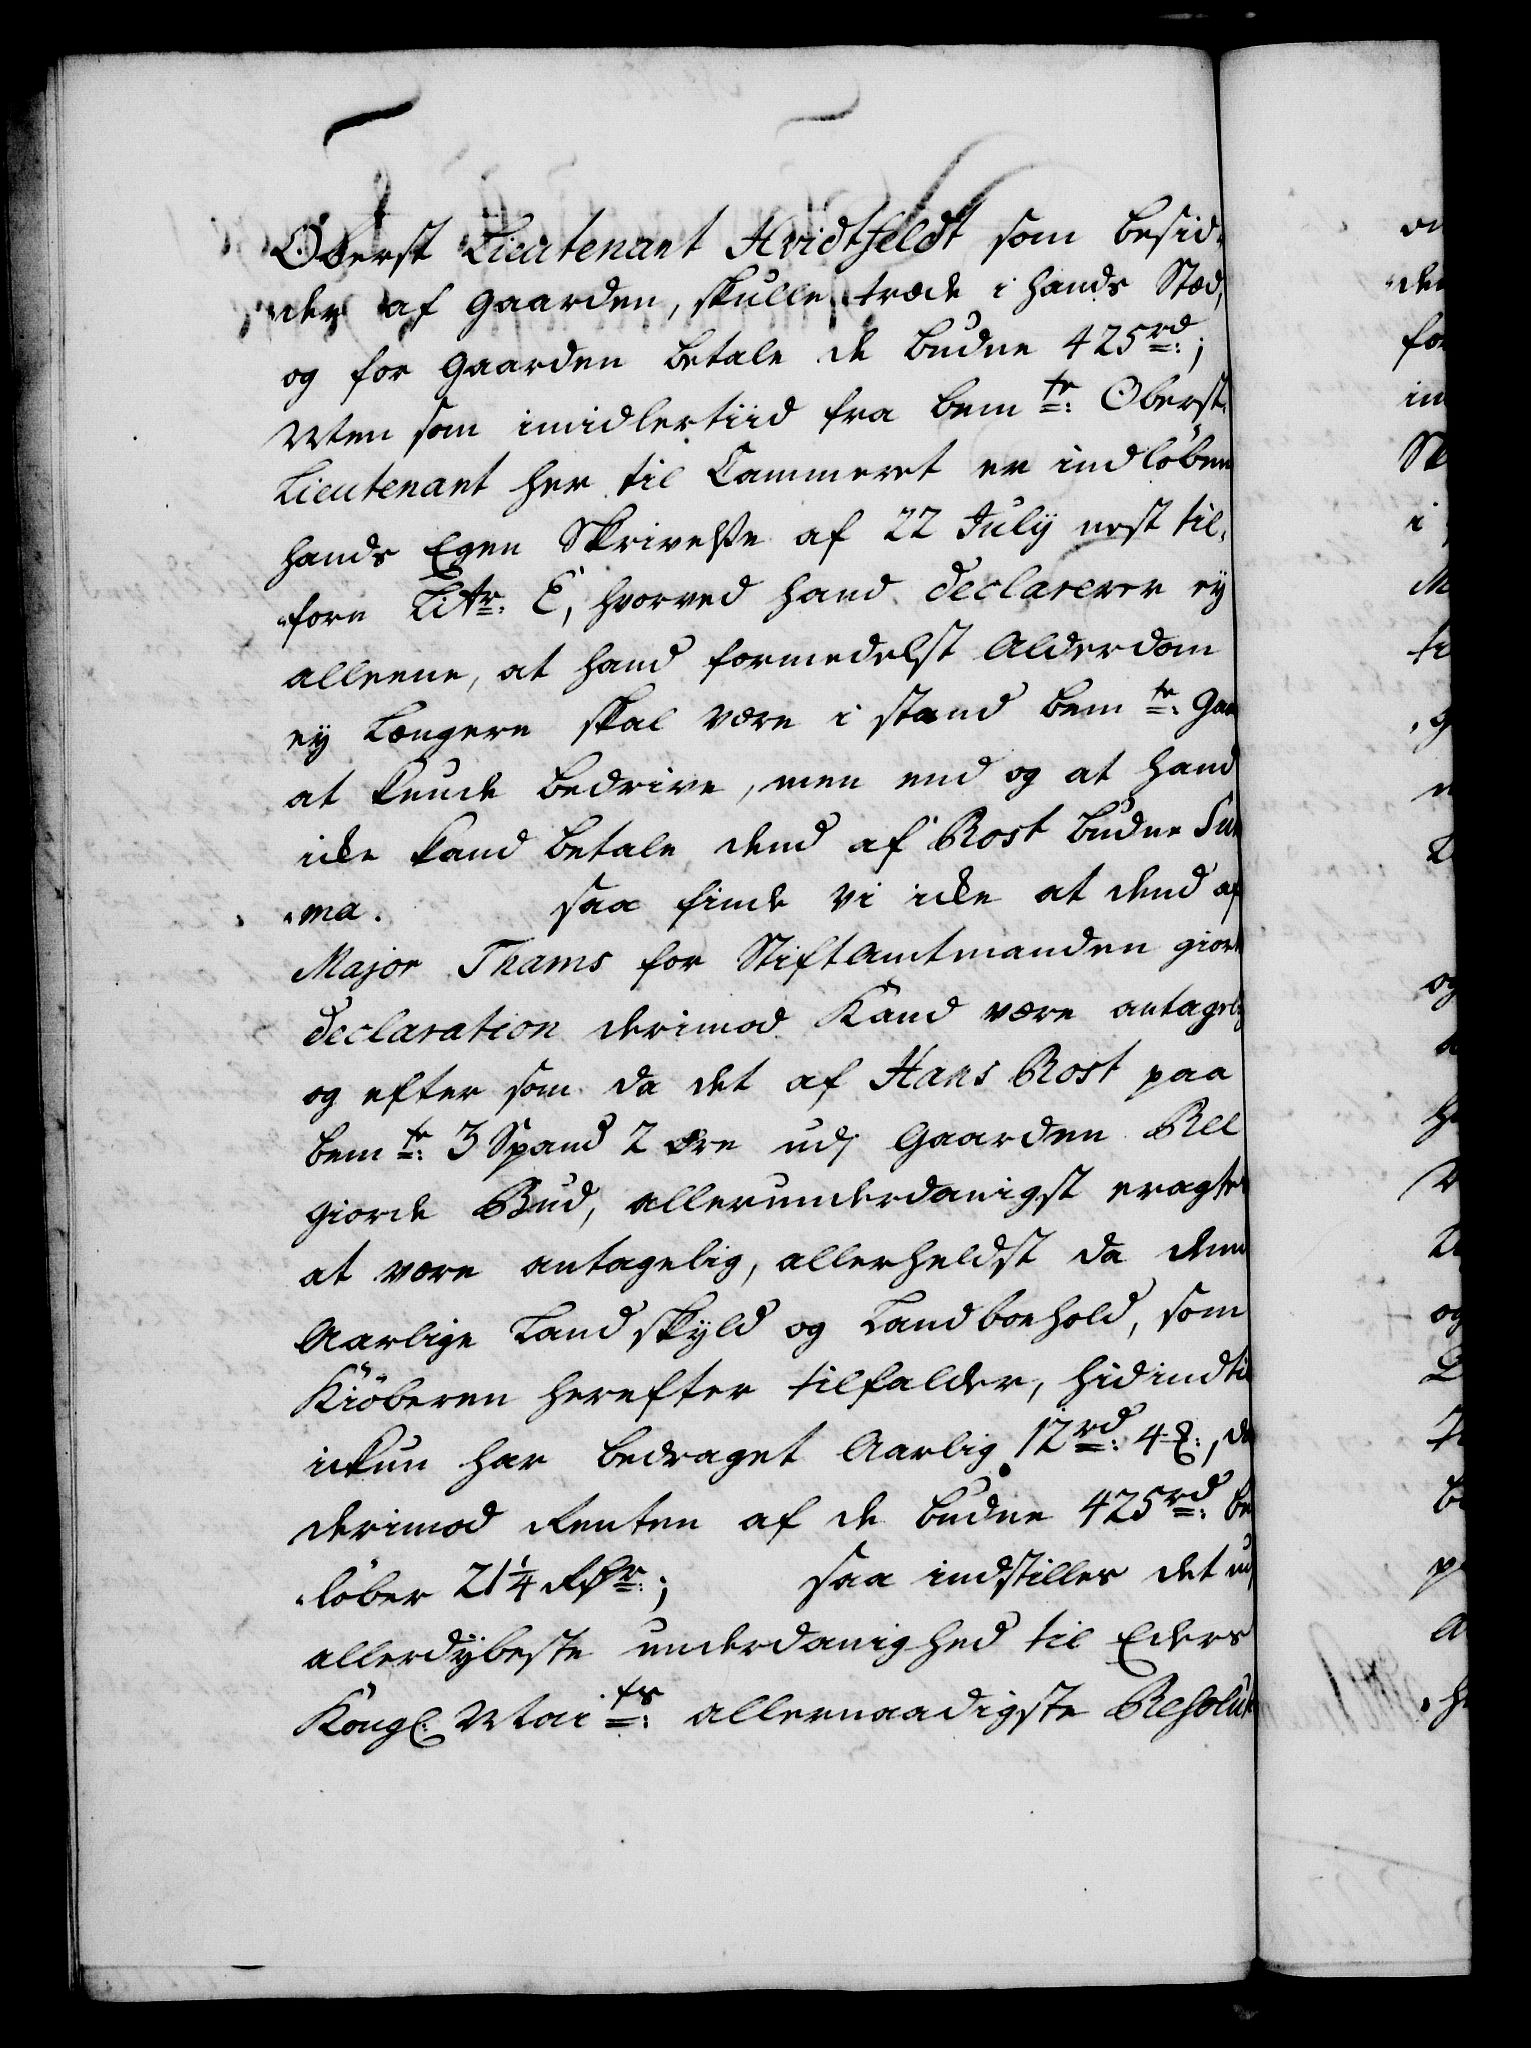 Oberst Lieutenant Hvidtfeldt som besid-
"der af Gaarden, skulle træde i hands Stæd,
og for Gaarden betale de budne 425 rd:;
Men som imidlertiid fra bem te: Oberst-
Lieutenant her til Cammeret er indløben
hands Egen Skrivelse af 22 July nest til-
"forn Litr: E, hvorved hand declarerer ey
alleene, at hand formedelst Alderdom
ey længere skal være i stand bem te: Gaar
at kunde bedrive, men end og at hand
icke kand betale dend af Rost budne Sum
"ma. saa finde vi icke at dend af
Major Thams for Stiftamtmanden giort
declaration derimod Kand være antagel:
og efter som da det af Hans Rost paa
bem te: 3 Spand 2 Øre udj Gaarden Ree
giorde Bud, allerunderdanigst eragtes
at være antagelig, allerheldst da denn
Aarlige Landskyld og Landboehold, som
Kiøberen herefter tilfalder, hidindtil
ickun har bedraget Aarlig 12 rd: 4 ß:, da
derimod Renten af de budne 425 rd: be
"løber 21 1/4 Rdr:; saa indstilles det udj
allerdybeste underdanighed til Eders
Kongl: Mai ts: allernaadigste Resolut